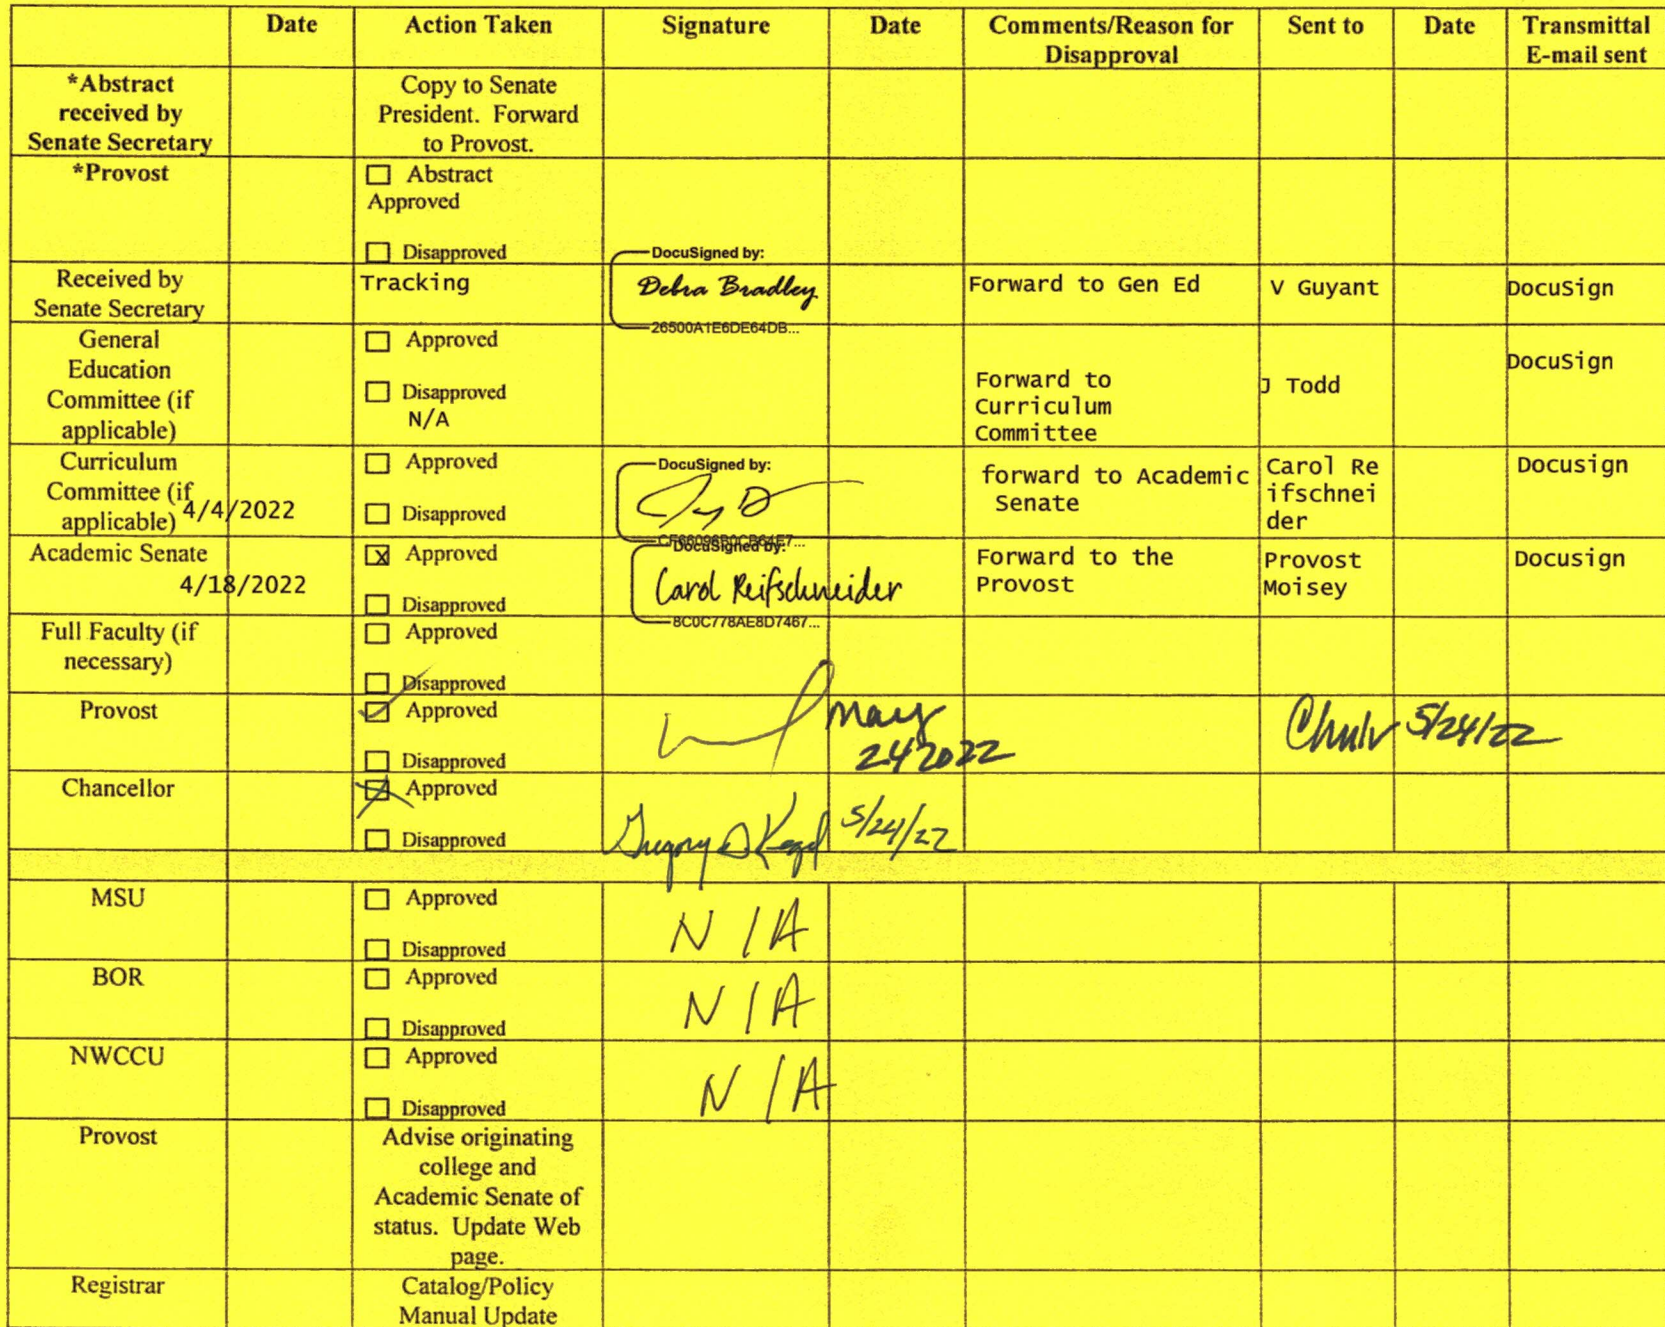 Date Action Taken Signature Date Comments/Reason for Sent to Date Transmittal
Disapproval E-mail sent
*Abstract
received by
Senate Secretary
Copy to Senate
President. Forward
to Provost.
*Provost
☐ Abstract
Approved
☐ Disapproved
Received by
Senate Secretary
Tracking
DocuSigned by:
Debra Bradley
26500A1E6DE64DB...
Forward to Gen Ed
V Guyant
DocuSign
General
Education
Committee (if
applicable)
☐ Approved
☐ Disapproved
N/A
Forward to
Curriculum
Committee
J Todd
DocuSign
Curriculum
Committee (if
applicable) 4/4/2022
☐ Approved
☐ Disapproved
DocuSigned by:
forward to Academic
Senate
Carol Re
ifschnei
der
Docusign
Academic Senate
4/18/2022
☒ Approved
☐ Disapproved
DocuSigned by:
Carol Reifschneider
8C0C778AE8D7467...
Forward to the
Provost
Provost
Moisey
Docusign
Full Faculty (if
necessary)
☐ Approved
☐ Disapproved
Provost
☑ Approved
☐ Disapproved
May
24 2022
5/24/22
Chancellor
☒ Approved
☐ Disapproved
Gregory D Kegel 5/24/22
MSU
☐ Approved
☐ Disapproved
N/A
BOR
☐ Approved
☐ Disapproved
N/A
NWCCU
☐ Approved
☐ Disapproved
N/A
Provost
Advise originating
college and
Academic Senate of
status. Update Web
page.
Registrar
Catalog/Policy
Manual Update